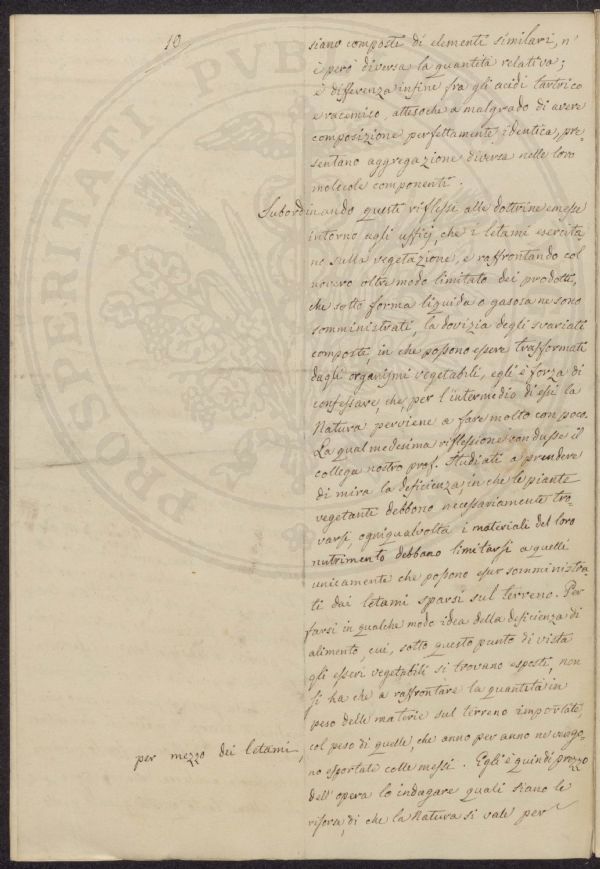 10
siano composti di elementi similari, n'
è però diversa la quantità relativa;
è differenza infine fra gli acidi tartrico
e racemico, attesoche a malgrado di avere
composizione perfettamente identica, pre-
sentano aggregazione diversa nelle loro
molecole componenti.
Subordinando questi riflessi alle dottrine emesse
intorno agli ufficj, che i letami esercita-
no sulla vegetazione, e raffrontando col
novero oltre modo limitato dei prodotti,
che sotto forma liquida o gasosa ne sono
somministrati, la dovizia degli svariati
composti, in che possono essere trasformati
dagli organismi vegetabili, egli è forza di
confessare, che, per l'intermedio di essi la
Natura perviene a fare molto con poco.
La qual medesima riflessione condusse il
collega nostro prof. Studiati a prendere
di mira la deficienza, in che le piante
vegetanti debbono necessariamente tro-
varsi, ogniqualvolta i materiali del loro
nutrimento debbano limitarsi a quelli
unicamente che possono esser somministra-
ti dai letami sparsi sul terreno. Per
farsi in qualche modo idea della deficienza di
alimento, cui, sotto questo punto di vista
gli esseri vegetabili si trovano esposti, non
si ha che a raffrontare la quantità in
peso delle materie sul terreno importate,
per mezzo dei letami,
col peso di quelle, che anno per anno ne vengo-
no esportate colle messi. Egli è quindi prezzo
dell'opera lo indagare quali siano le
risorse, di che la Natura si vale per
PROSPERITATI PVBLICAE